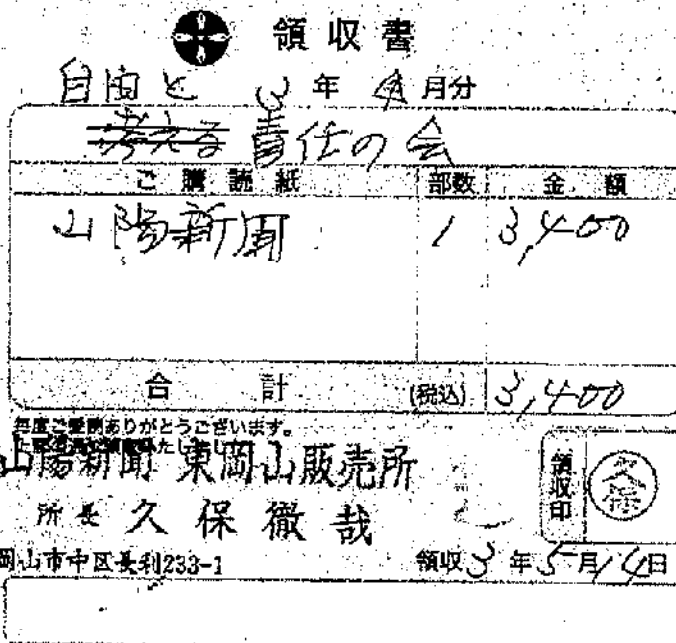 領収書
自由と 3年4月分
考える責任の会
ご購読紙 部数 金額
山陽新聞 1 3,400
合計 (税込) 3,400
毎度ご愛読ありがとうございます。
山陽新聞 東岡山販売所
所長 久保徹哉
領収印 久保
岡山市中区長利233-1 領収3年5月14日